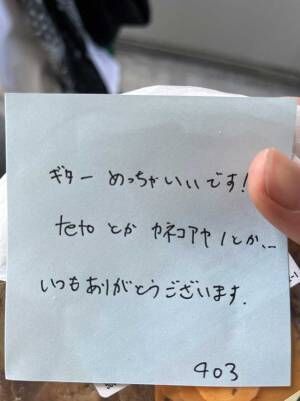 ギター めっちゃいいです!
tetoとか カネコアヤノとか、、
いつもありがとうございます.
403